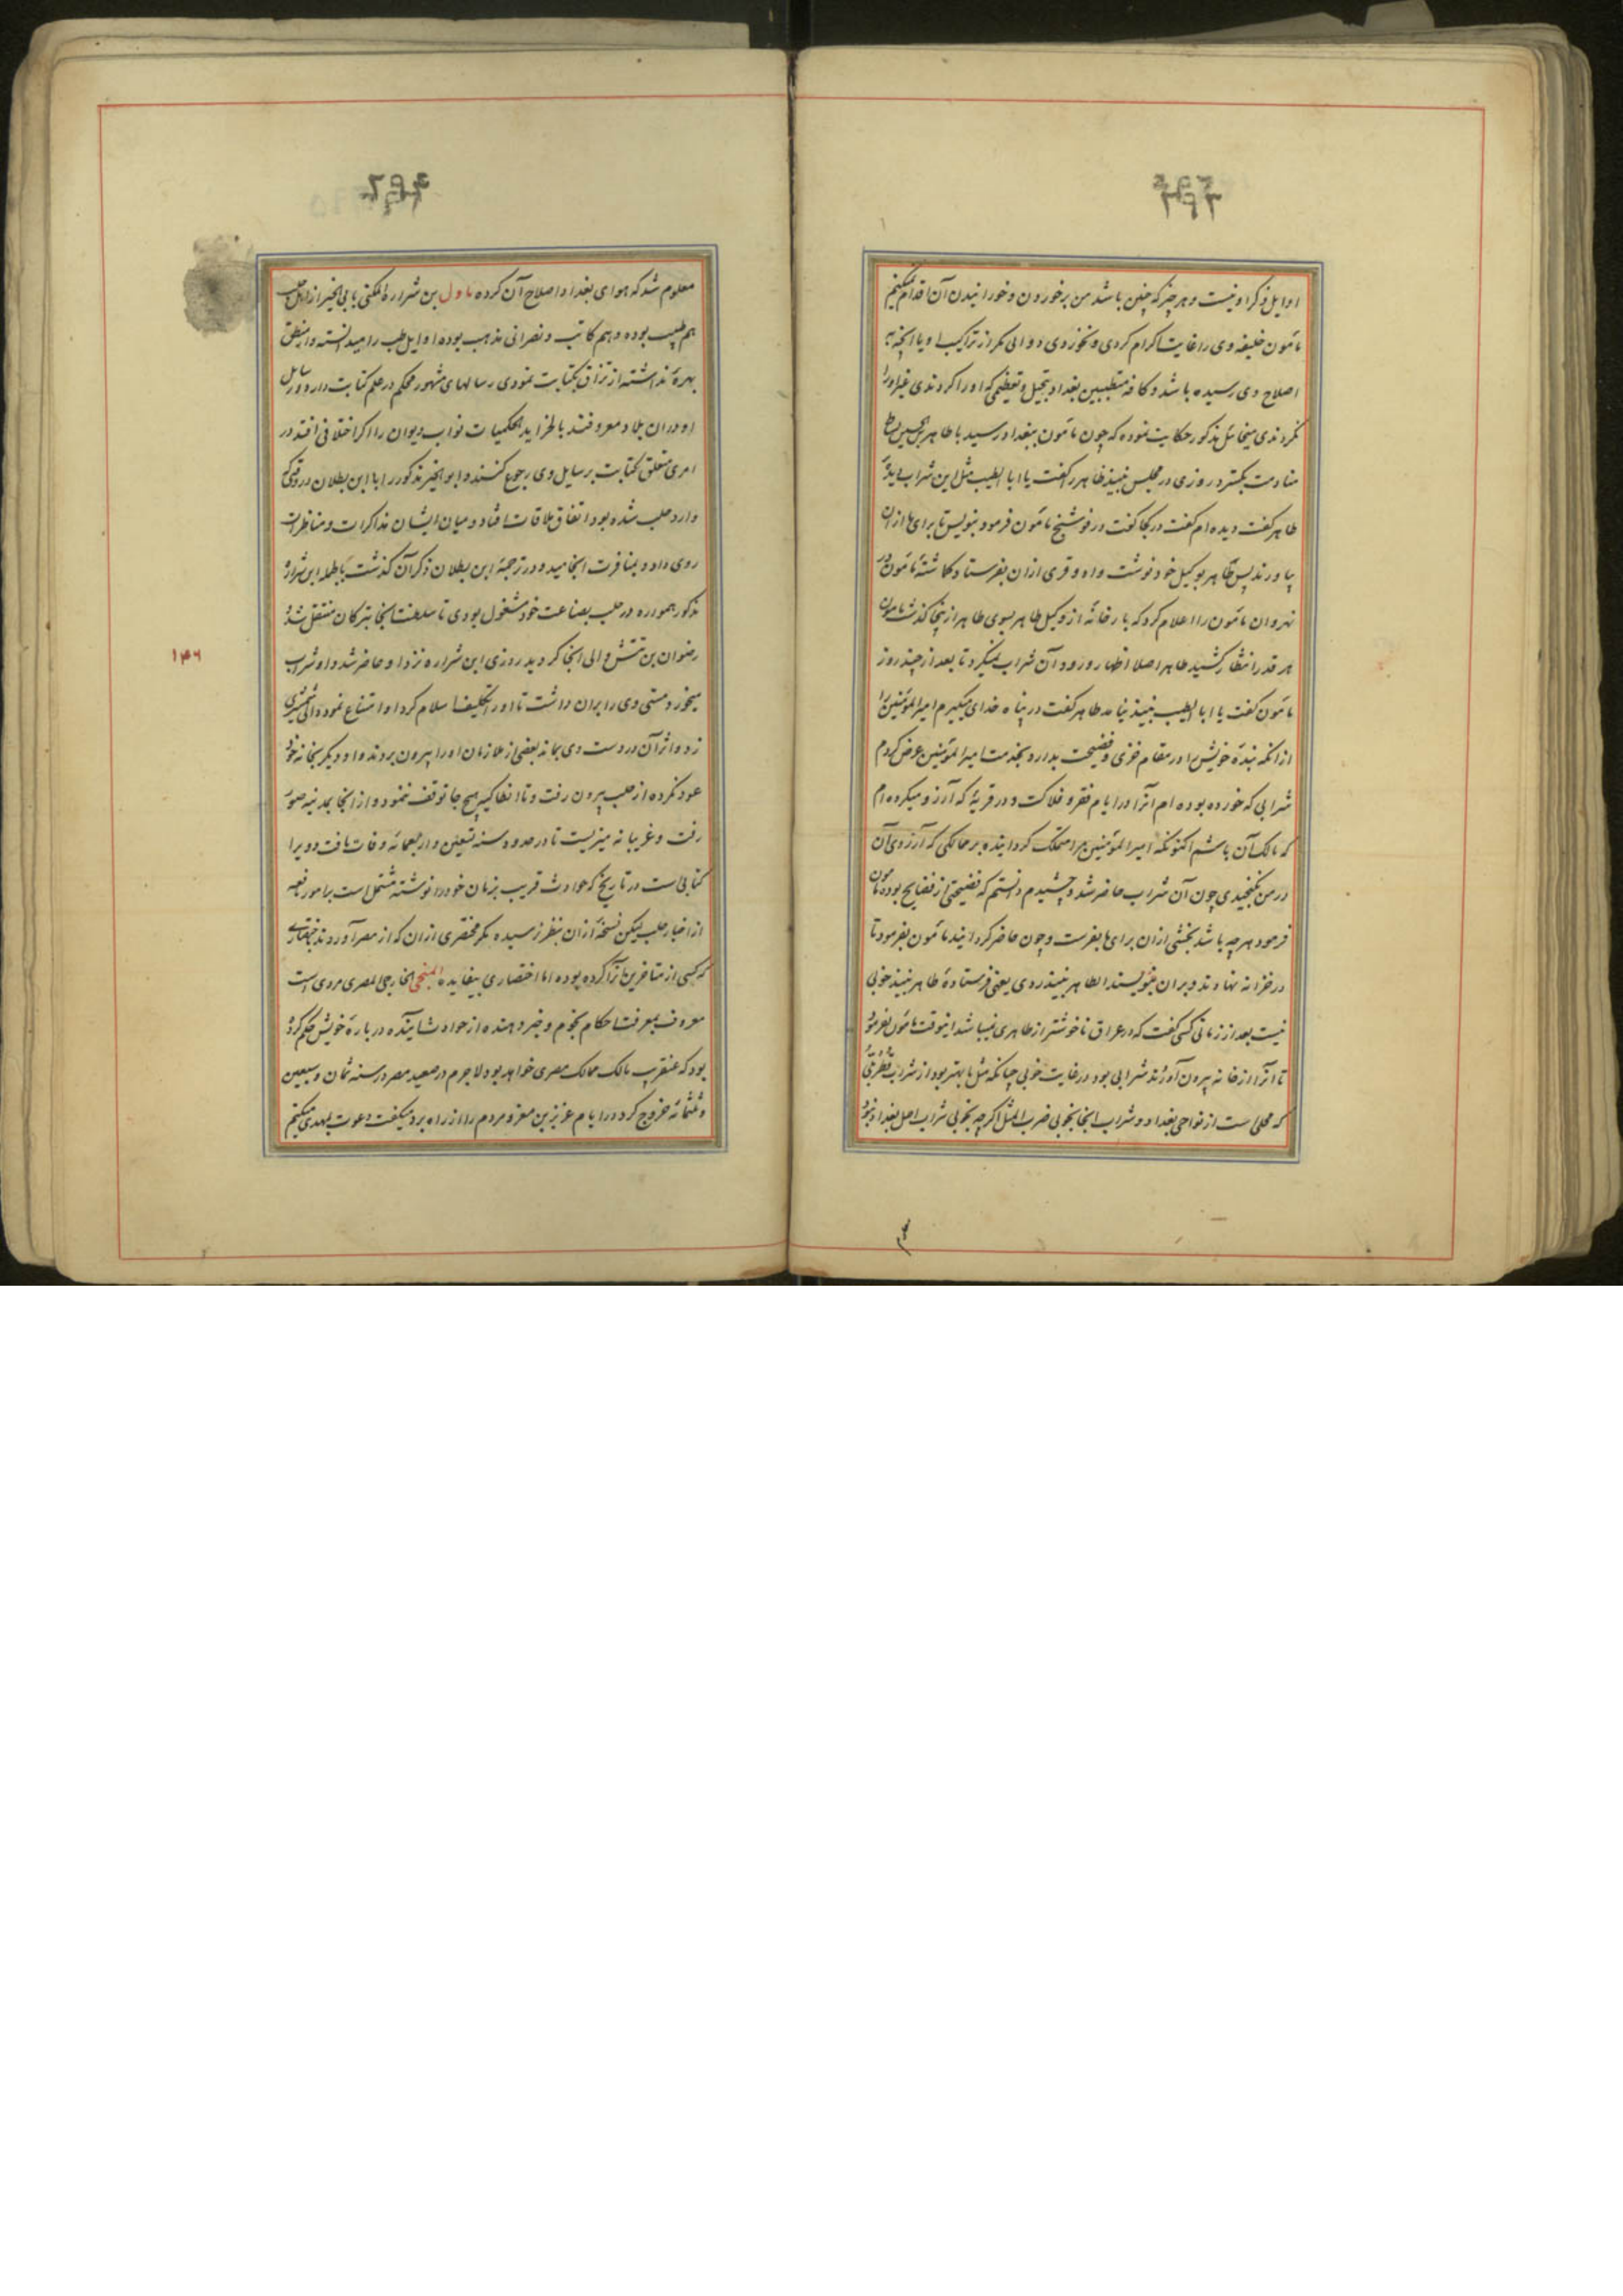 اوایل ذکر او نیست و هر چیز که چنین باشد من بر خوردن و خورانیدن آن اقدام نمیکنم
مأمون خلیفه وی را غایت اکرام کردی و نخوردی دوائی مکر از تراکیب او یا آنچه به
اصلاح وی رسیده باشد و کافه متطببین بغداد تبجیل و تعظیمی که او را کردندی غیر او را
نکردندی میخائل مذکور حکایت نموده که چون مأمون ببغداد رسید با طاهر بن الحسین بساط
منادمت بکسترد روزی در مجلس نبیذ طاهر را کفت یا ابا الطیب مثل این شراب دیدۀ
طاهر کفت دیده ام کفت در کجا کفت در فوشنج مأمون فرمود بنویس تا برای ما از ان
بیاورند پس طاهر بوکیل خود نوشت و او وقری ازان بفرستاد کماشتۀ مأمون در
نهروان مأمون را اعلام کرد که بارخانۀ از وکیل طاهر بسوی طاهر از ینجا کذشت مامون
هر قدر انتظار کشید طاهر اصلا اظهار ورود آن شراب نمیکرد تا بعد از چند روز
مأمون کفت یا ابا الطیب نبیذ نیامد طاهر کفت در پناه خدای میکیرم امیر المؤمنین را
از انکه بندۀ خویش را در مقام خزی و فضیحت بدارد بخدمت امیر المؤمنین عرض کردم
شرابی که خورده بوده ام آنرا در ایام فقر و فلاکت و در قریۀ که آرزو میکرده ام
که مالک آن باشم اکنون که امیر المؤمنین مرا متملک کردانیده بر ممالکی که آرزوی آن
در من نکنجیدی چون آن شراب حاضر شد و چشیدم دانستم که فضیحتی از فضایح بوده مامون
فرمود هر چه باشد بخشی ازان برای ما بفرست و چون حاضر کردانیدند مأمون بفرمود تا
در خزانه نهادند و بران بنویسند الطاهری نبیذ روی یعنی فرستادۀ طاهر نبیذ خوبی
نیست بعد از زمانی کسی کفت که در عراق ناخوشتر از طاهری نمیباشد اینوقت مأمون بفرمود
تا آنرا از خانه بیرون آورند شرابی بود در غایت خوبی چنانکه مثل ما بهتر بود از شراب قطربلی
که محلی ست از نواحی بغداد و شراب انجا بخوبی ضرب المثل اکرچه بخوبی شراب اصل بغداد نبود
معلوم شد که هوای بغداد اصلاح آن کرده ماول بن شراره المکنی بابی الخیر از اهل حلب
هم طبیب بوده و هم کاتب و نصرانی مذهب بوده اوایل طب را میدانسته و از منطق
بهرۀ نداشته ارتزاق بکتابت نمودی رسالهای مشهور محکم در علم کتابت دارد و رسایل
او دران بلاد معروفند بالخزاید الحکمیات نواب دیوان را اکر اختلافی افتد در
امری متعلق کتابت برسایل وی رجوع کنند و ابو الخیر مذکور را با ابن بطلان در وقتی که
وارد حلب شده بود اتفاق ملاقات افتاد و میان ایشان مذاکرات و مناظرات
روی داد و بمنافرت انجامید و در ترجمۀ ابن بطلان ذکر آن کذشت بالجمله ابن شرارۀ
مذکور همواره در حلب بصناعت خود مشغول بودی تا سلطنت انجا بترکان منتقل شد و
رضوان بن تتش والی انجا کردید روزی ابن شراره نزد او حاضر شد و او شراب
میخورد مستی وی را بران داشت تا او را تکلیف اسلام کرد او امتناع نمود والی شمشیری
زد و اثر آن در دست وی بماند بعضی از ملازمان او را بیرون بردند و او دیکر بخانه خود
عود نکرده از حلب بیرون رفت و تا انطاکیه هیچ جا توقف ننمود و از انجا بمدینه صور
رفت و غریبانه میزیست تا در حدود سنه تسعین و اربعمائه وفات یافت و ویرا
کتابی است در تاریخ که حوادث قریب بزمان خود را نوشته مشتمل است بر امور نافعه
از اخبار حلب لیکن نسخۀ ازان بنظر نرسیده مکر مختصری ازان که از مصر آوردند اختصاری
که کسی از متاخرین آنرا کرده بوده اما اختصاری بیفایده المنجی الخارجی المصری مردی است
معروف بمعرفت احکام نجوم و خبر دهنده از حوادث آینده در بارۀ خویش حکم کرده
بود که عنقریب مالک ممالک مصری خواهد بود لاجرم در صعید مصر در سنه ثمان و سبعین
و ثلثمائه خروج کرد در ایام عزیز بن معز و مردم را از راه برد و میکفت دعوت بمهدی میکنم
۱۴۶